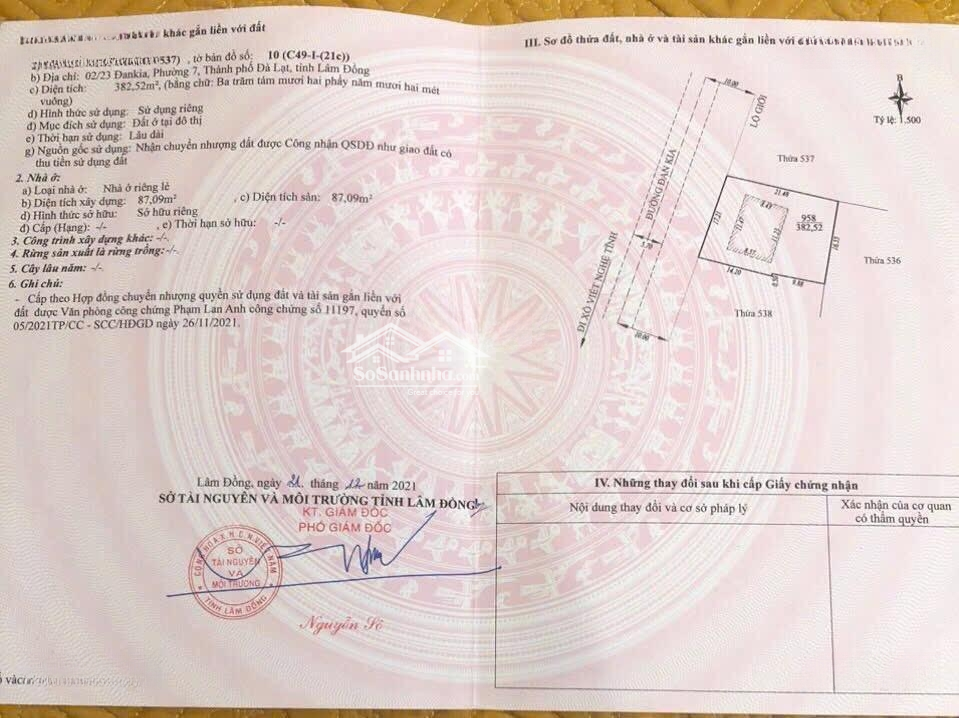 khác gắn liền với đất
0537) , tờ bản đồ số: 10 (C49-I-(21c))
b) Địa chỉ: 02/23 Đankia, Phường 7, Thành phố Đà Lạt, tỉnh Lâm Đồng
c) Diện tích: 382,52m², (bằng chữ: Ba trăm tám mươi hai phẩy năm mươi hai mét
vuông)
d) Hình thức sử dụng: Sử dụng riêng
đ) Mục đích sử dụng: Đất ở tại đô thị
e) Thời hạn sử dụng: Lâu dài
g) Nguồn gốc sử dụng: Nhận chuyển nhượng đất được Công nhận QSDĐ như giao đất có
thu tiền sử dụng đất
2. Nhà ở:
a) Loại nhà ở: Nhà ở riêng lẻ
b) Diện tích xây dựng: 87,09m² , c) Diện tích sàn: 87,09m²
d) Hình thức sở hữu: Sở hữu riêng
đ) Cấp (Hạng): -/- , e) Thời hạn sở hữu: -/-
3. Công trình xây dựng khác: -/-
4. Rừng sản xuất là rừng trồng: -/-
5. Cây lâu năm: -/-
6. Ghi chú:
- Cấp theo Hợp đồng chuyển nhượng quyền sử dụng đất và tài sản gắn liền với
đất được Văn phòng công chứng Phạm Lan Anh công chứng số 11197, quyển số
05/2021TP/CC - SCC/HĐGD ngày 26/11/2021.
SoSanhnha.com
Lâm Đồng, ngày 21 tháng 12 năm 2021
SỞ TÀI NGUYÊN VÀ MÔI TRƯỜNG TỈNH LÂM ĐỒNG
KT. GIÁM ĐỐC
PHÓ GIÁM ĐỐC
CỘNG HÒA X.H.C.N VIỆT NAM
SỞ
TÀI NGUYÊN
VÀ
MÔI TRƯỜNG
TỈNH LÂM ĐỒNG
Nguyễn Sô
III. Sơ đồ thửa đất, nhà ở và tài sản khác gắn liền với
B
Tỷ lệ: 1.500
10.00
LỘ GIỚI
Thửa 537
ĐƯỜNG ĐAN KIA
21.48
8.43
17.21
11.47
11.23
958
382,52
16.55
5.70
8.55
Thửa 536
14.20
0.50
9.88
ĐI XÔ VIẾT NGHỆ TĨNH
Thửa 538
10.00
IV. Những thay đổi sau khi cấp Giấy chứng nhận
Nội dung thay đổi và cơ sở pháp lý
Xác nhận của cơ quan
có thẩm quyền